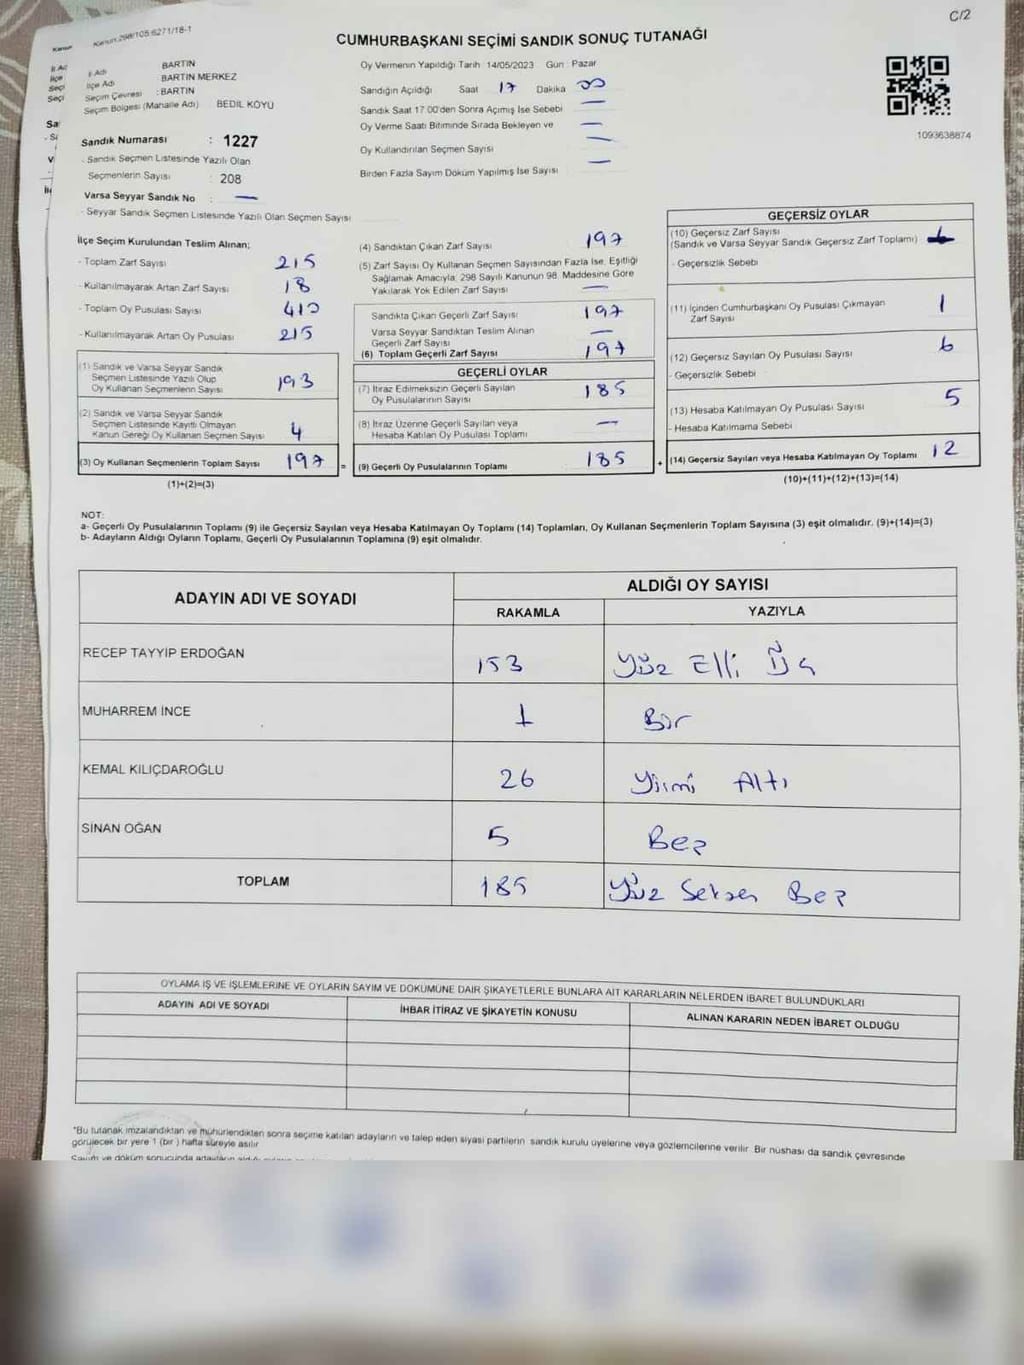 C/2
Kanun:298/105:6271/18-1
CUMHURBAŞKANI SEÇİMİ SANDIK SONUÇ TUTANAĞI
İl Adı BARTIN
İlçe Adı BARTIN MERKEZ
Seçim Çevresi : BARTIN
Seçim Bölgesi (Mahalle Adı) BEDİL KÖYÜ
Sandık Numarası : 1227
- Sandık Seçmen Listesinde Yazılı Olan
Seçmenlerin Sayısı : 208
Varsa Seyyar Sandık No : —
- Seyyar Sandık Seçmen Listesinde Yazılı Olan Seçmen Sayısı
Oy Vermenin Yapıldığı Tarih : 14/05/2023 Gün : Pazar
Sandığın Açıldığı Saat 17 Dakika 00
Sandık Saat 17.00'den Sonra Açımış İse Sebebi —
Oy Verme Saati Bitiminde Sırada Bekleyen ve —
Oy Kullandırılan Seçmen Sayısı —
Birden Fazla Sayım Döküm Yapılmış İse Sayısı —
1093638874
İlçe Seçim Kurulundan Teslim Alınan;
- Toplam Zarf Sayısı 215
- Kullanılmayarak Artan Zarf Sayısı 18
- Toplam Oy Pusulası Sayısı
- Kullanılmayarak Artan Oy Pusulası 215
(1) Sandık ve Varsa Seyyar Sandık
Seçmen Listesinde Yazılı Olup
Oy Kullanan Seçmenlerin Sayısı 193
(2) Sandık ve Varsa Seyyar Sandık
Seçmen Listesinde Kayıtlı Olmayan
Kanun Gereği Oy Kullanan Seçmen Sayısı 4
(3) Oy Kullanan Seçmenlerin Toplam Sayısı 197 =
(1)+(2)=(3)
(4) Sandıktan Çıkan Zarf Sayısı 197
(5) Zarf Sayısı Oy Kullanan Seçmen Sayısından Fazla İse, Eşitliği
Sağlamak Amacıyla, 298 Sayılı Kanunun 98. Maddesine Göre
Yakılarak Yok Edilen Zarf Sayısı —
Sandıkta Çıkan Geçerli Zarf Sayısı 197
Varsa Seyyar Sandıktan Teslim Alınan
Geçerli Zarf Sayısı —
(6) Toplam Geçerli Zarf Sayısı 197
GEÇERLİ OYLAR
(7) İtiraz Edilmeksizin Geçerli Sayılan
Oy Pusulalarının Sayısı 185
(8) İtiraz Üzerine Geçerli Sayılan veya
Hesaba Katılan Oy Pusulası Toplamı —
(9) Geçerli Oy Pusulalarının Toplamı 185 +
GEÇERSİZ OYLAR
(10) Geçersiz Zarf Sayısı
(Sandık ve Varsa Seyyar Sandık Geçersiz Zarf Toplamı)
- Geçersizlik Sebebi
(11) İçinden Cumhurbaşkanı Oy Pusulası Çıkmayan
Zarf Sayısı 1
(12) Geçersiz Sayılan Oy Pusulası Sayısı 6
- Geçersizlik Sebebi
(13) Hesaba Katılmayan Oy Pusulası Sayısı 5
- Hesaba Katılmama Sebebi
(14) Geçersiz Sayılan veya Hesaba Katılmayan Oy Toplamı 12
(10)+(11)+(12)+(13)=(14)
NOT:
a- Geçerli Oy Pusulalarının Toplamı (9) ile Geçersiz Sayılan veya Hesaba Katılmayan Oy Toplamı (14) Toplamları, Oy Kullanan Seçmenlerin Toplam Sayısına (3) eşit olmalıdır. (9)+(14)=(3)
b- Adayların Aldığı Oyların Toplamı, Geçerli Oy Pusulalarının Toplamına (9) eşit olmalıdır.
ADAYIN ADI VE SOYADI ALDIĞI OY SAYISI
RAKAMLA YAZIYLA
RECEP TAYYİP ERDOĞAN 153 Yüz Elli Üç
MUHARREM İNCE 1 Bir
KEMAL KILIÇDAROĞLU 26 Yirmi Altı
SİNAN OĞAN 5 Beş
TOPLAM 185 Yüz Seksen Beş
OYLAMA İŞ VE İŞLEMLERİNE VE OYLARIN SAYIM VE DÖKÜMÜNE DAİR ŞİKAYETLERLE BUNLARA AİT KARARLARIN NELERDEN İBARET BULUNDUKLARI
ADAYIN ADI VE SOYADI İHBAR İTİRAZ VE ŞİKAYETİN KONUSU ALINAN KARARIN NEDEN İBARET OLDUĞU
*Bu tutanak imzalandıktan ve mühürlendikten sonra seçime katılan adayların ve talep eden siyasi partilerin sandık kurulu üyelerine veya gözlemcilerine verilir. Bir nüshası da sandık çevresinde
görülecek bir yere 1 (bir ) hafta süreyle asılır
Sayım ve döküm sonucunda adayların